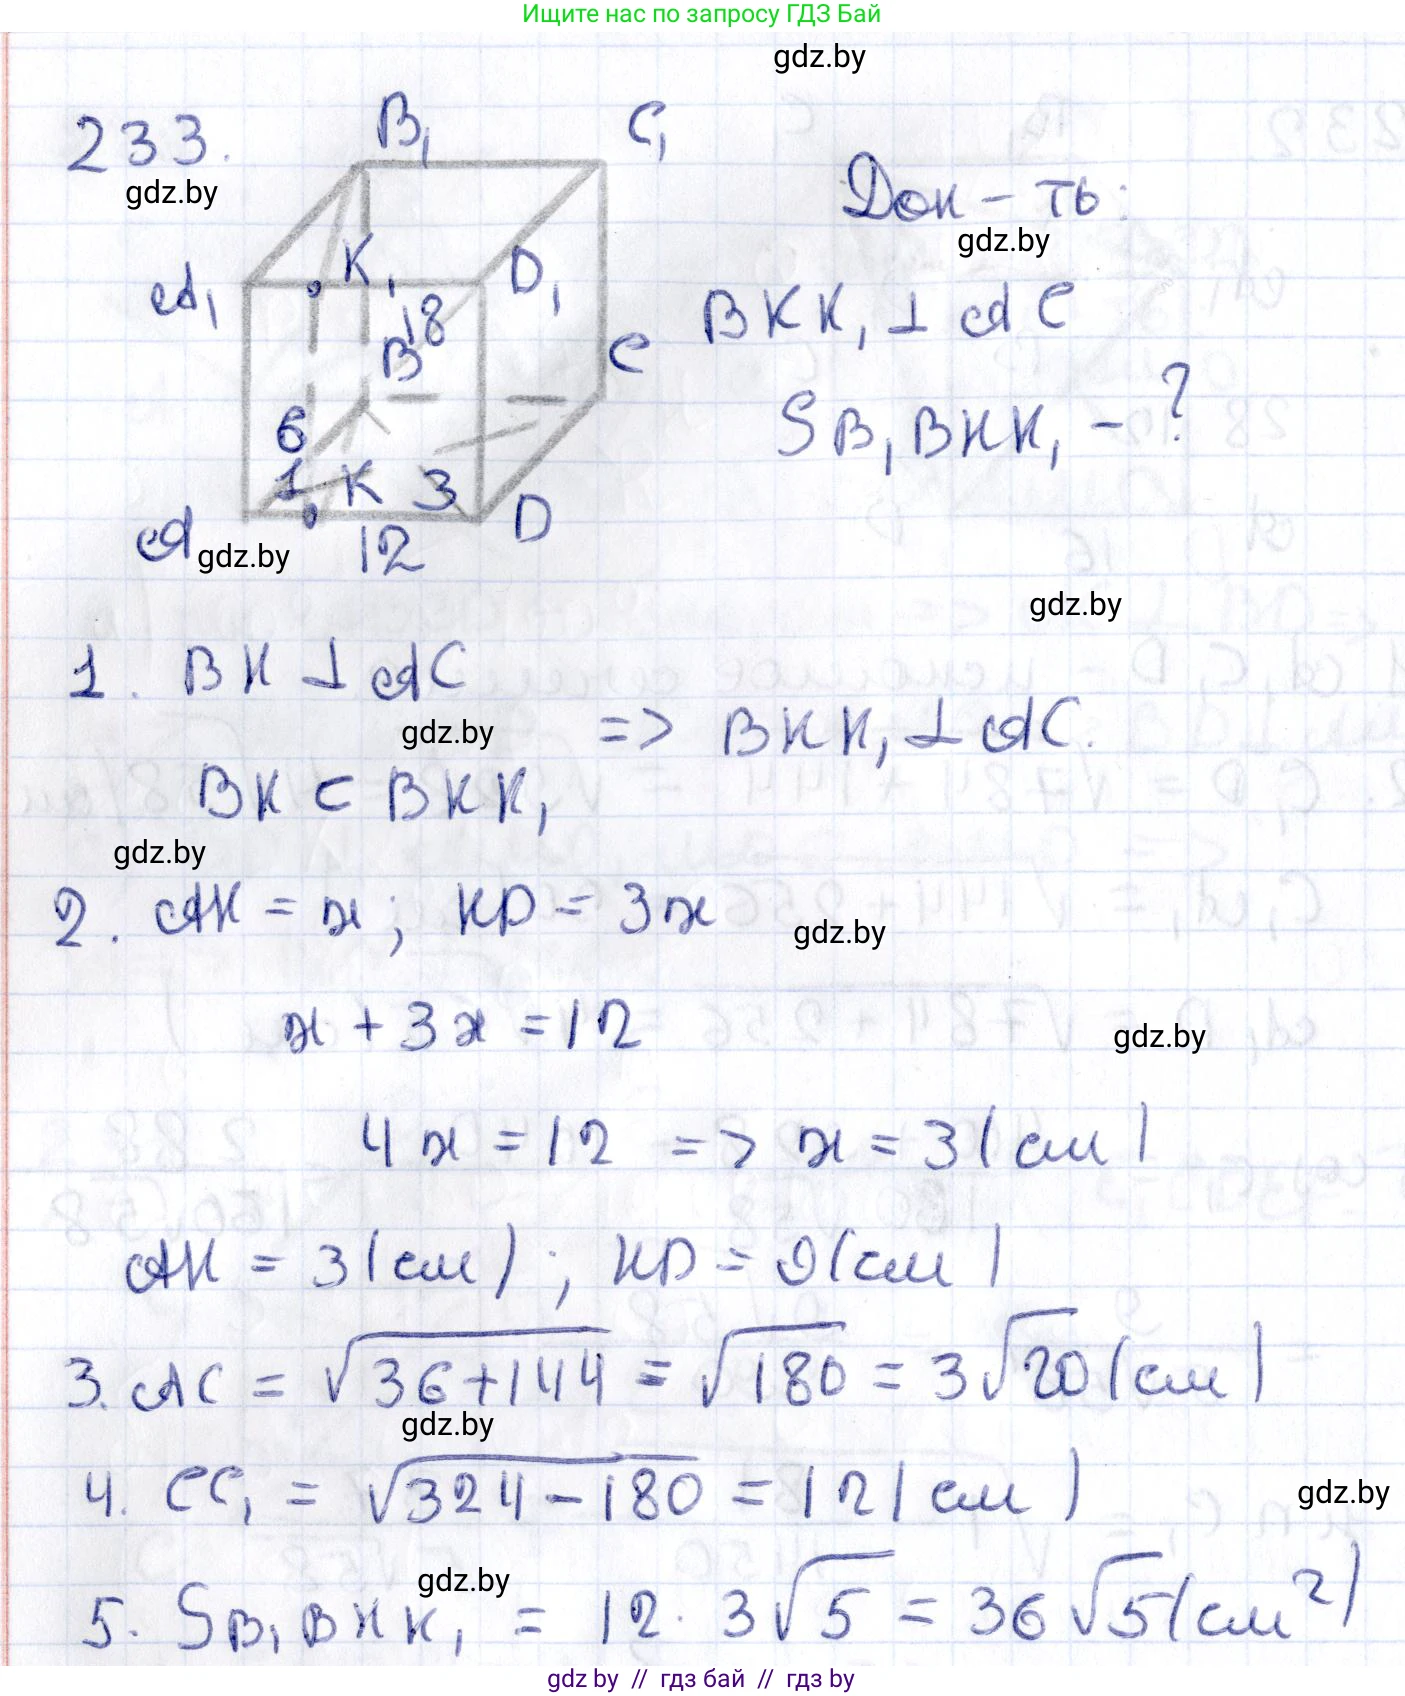 Ищите нас по запросу ГДЗ Бай
gdz.by
233.
gdz.by
B₁
C₁
A₁
K₁
D₁
18
B
C
6
1
K
3
A
12
D
gdz.by
Док-ть:
gdz.by
BKK₁ ⊥ AC
S B₁BKK₁ - ?
gdz.by
1. BK ⊥ AC
gdz.by
=> BKK₁ ⊥ AC.
BK ⊂ BKK₁
gdz.by
2. AK = x; KD = 3x
gdz.by
x + 3x = 12
gdz.by
4x = 12 => x = 3 (см)
AK = 3 (см); KD = 9 (см)
3. AC = √36+144 = √180 = 3√20 (см)
gdz.by
4. CC₁ = √324-180 = 12 (см)
gdz.by
gdz.by
5. S B₁BKK₁ = 12 · 3√5 = 36√5 (см²)
gdz.by // гдз бай // гдз by